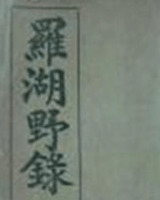 羅湖野錄